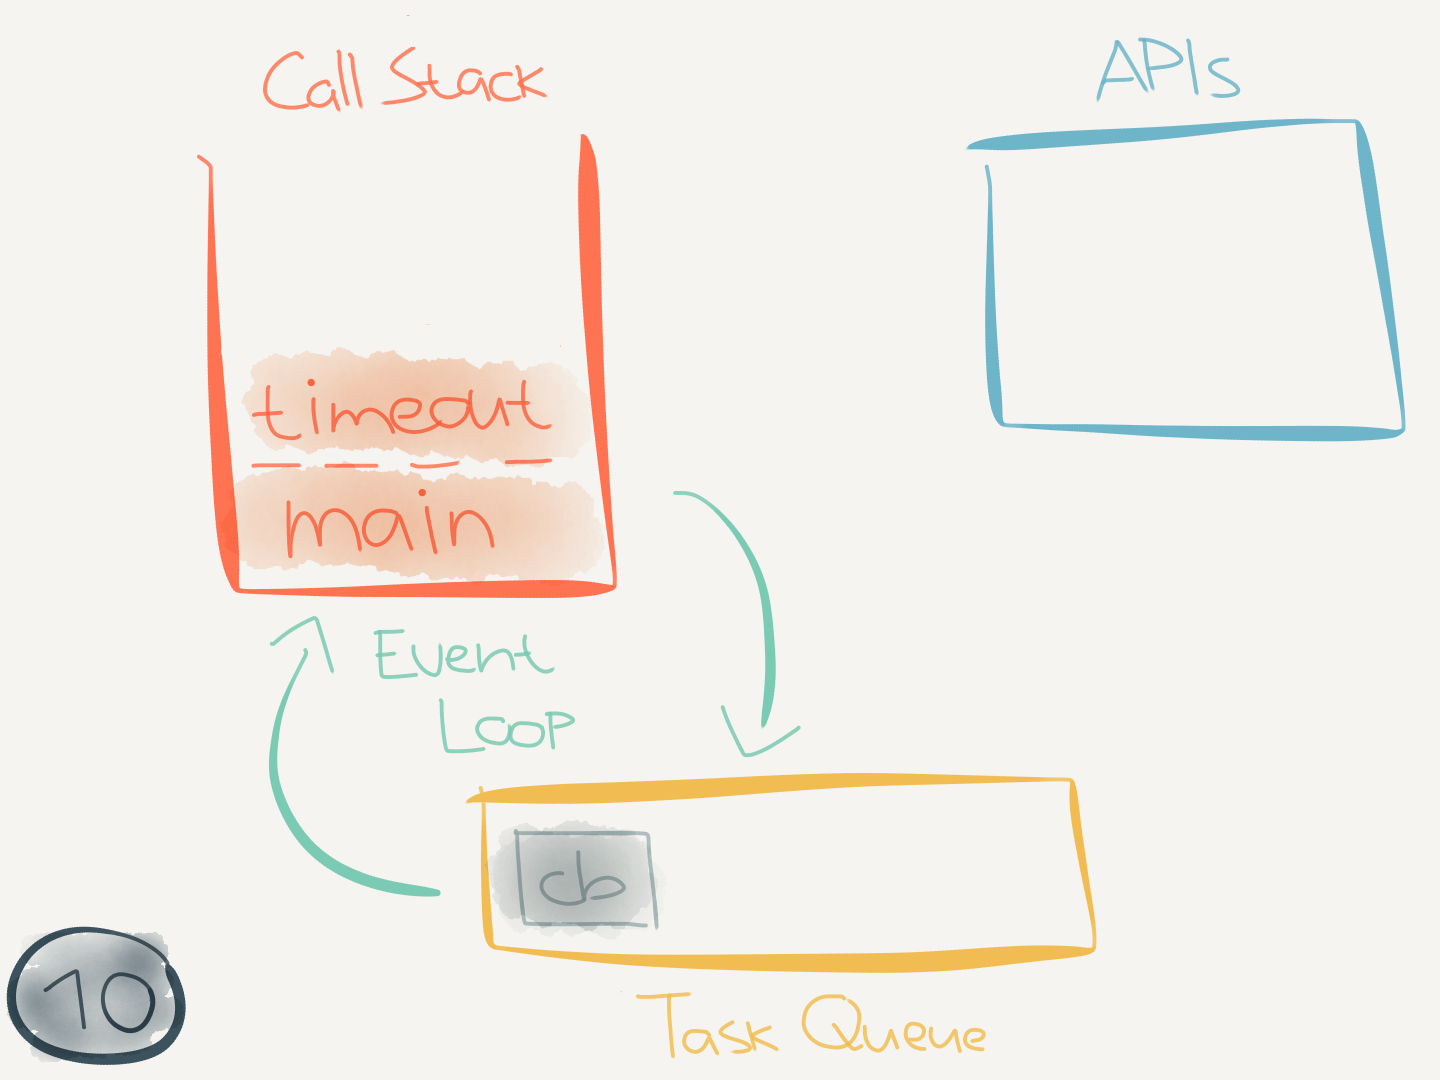 Call Stack
APIs
timeout
main
Event
Loop
cb
10
Task Queue